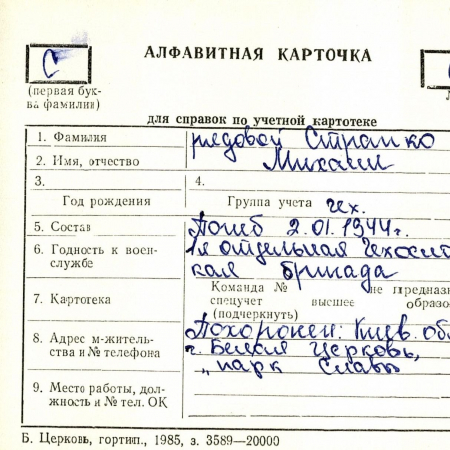 С
АЛФАВИТНАЯ КАРТОЧКА
(первая бук-
ва фамилии)
для справок по учетной картотеке
1. Фамилия рядовой Странко
2. Имя, отчество Михаил
3. 4.
Год рождения Группа учета чех.
5. Состав Погиб 2.01.1944 г.
6. Годность к воен-
службе 1я отдельная Чехосл
кая бригада
7. Картотека Команда № не предназ
спецучет высшее образо
(подчеркнуть)
8. Адрес м-житель-
ства и № телефона Похоронен: Киев. об
г. Белая Церковь,
„парк Славы
9. Место работы, дол-
жность и № тел. ОК
Б. Церковь, гортип., 1985, з. 3589—20000